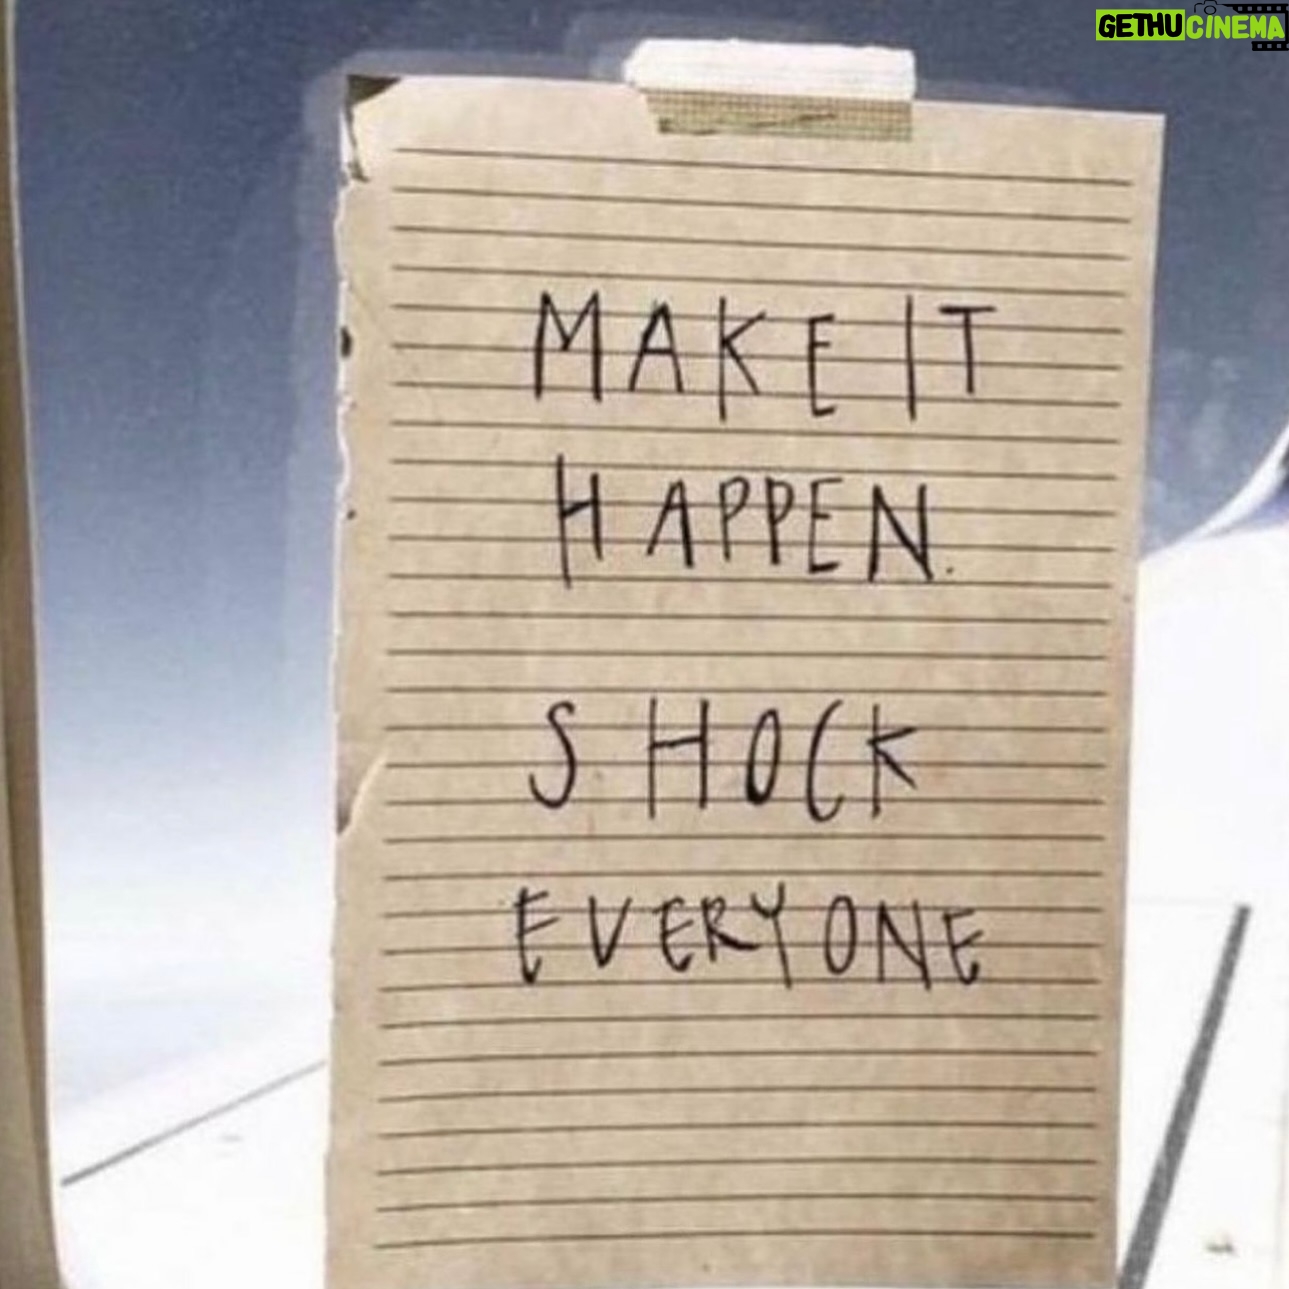 GETHUCINEMA
MAKE IT
HAPPEN.
SHOCK
EVERYONE